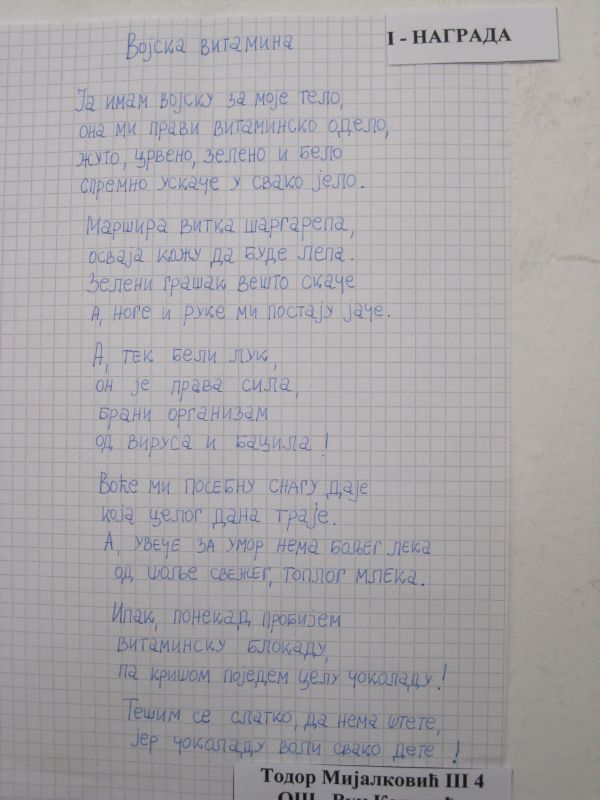 Војска витамина
I - НАГРАДА
Ја имам војску за моје тело,
она ми прави витаминско одело,
жуто, црвено, зелено и бело
спремно ускаче у свако јело.
Маршира витка шаргарепа,
осваја кожу да буде лепа.
Зелени грашак вешто скаче
А, ноге и руке ми постају јаче.
А, тек бели лук,
он је права сила,
брани организам
од вируса и бацила!
Воће ми посебну снагу даје
која целог дана траје.
А, увече за умор нема бољег лека
од шоље свежег, топлог млека.
Ипак, понекад пробијем
витаминску блокаду,
па кришом поједем целу чоколаду!
Тешим се слатко, да нема штете,
јер чоколаду воли свако дете!
Тодор Мијалковић III 4
ОШ Вук